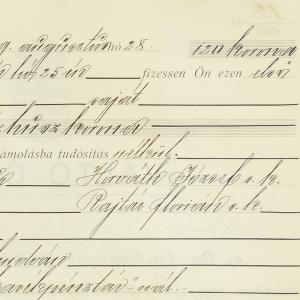 9. augusztus hó 28. 120 korona
hó 25 én fizessen Ön ezen első
saját
húsz korona
zámolásba tudósítás nélkül.
Horváth József s. k.
Rajtár Florián s. k.
takarékpénztár"-nál.